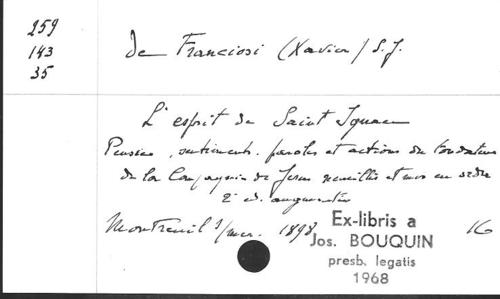 259
143
35
de Franciosi (Xavier) S.J.
L'esprit de Saint Ignace
Pensées, sentiments, paroles et actions du fondateur
de la Compagnie de Jésus recueillis et mis en ordre
2e éd. augmentée
Montreuil s/mer. 1898 16
Ex-libris a
Jos. BOUQUIN
presb. legatis
1968